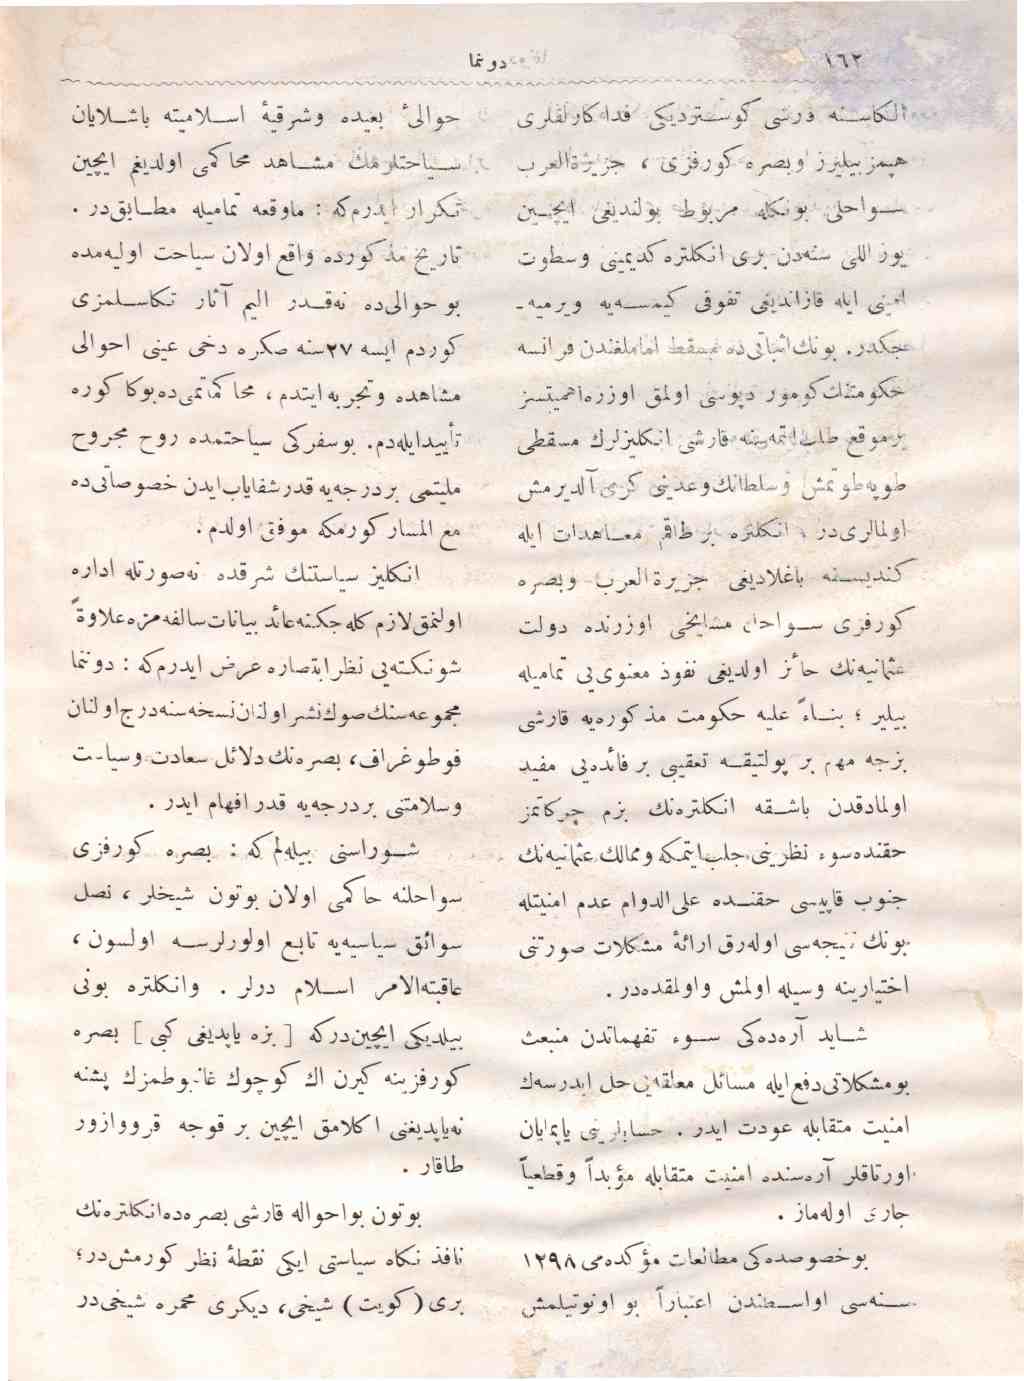 ١٦٢
دوننما
قارشى كوستردیكى فداكارلقلرى
هپمز بیلیرز وبصره كورفزى ، جزیرةالعرب
سواحلى بونكله مربوط بولندیغى ایچین
یوز اللى سنه‌دن برى انكلتره كدیمینى وسطوت
ایله قازاندیغى تفوقى كیمسه‌یه ویرمیه‌ـ
جكدر. بونك اثباتى‌ده فرانسه
حكومتنك كومور دپوسى اولمق اوزره اهمیتسز
برموقع قارشى انكلیزلرك مسقطى
طوپه‌طوتمش وسلطانك كرى آلدیرمش
اولمالرى‌در ، انكلتره بر طاقم معاهدات ایله
كندیسنه باغلادیغى جزیرةالعرب وبصره
كورفزى سواحل مشایخى اوزرنده دولت
عثمانیه‌نك حائز اولدیغى نفوذ معنوى‌یى تمامیله
بیلیر ؛ بناءً علیه حكومت مذكوره‌یه قارشى
بزجه مهم بر پولتیقه تعقیبى بر فائده‌یى مفید
اولمادقدن باشقه انكلتره‌نك بزم حركاتمز
حقنده‌سوء نظرینى جلب‌ایتمكه وممالك عثمانیه‌نك
جنوب قاپیسى حقنده على‌الدوام عدم امنیتله
بونك نتیجه‌سى اوله‌رق ارائۀ مشكلات صورتنى
اختیارینه وسیله اولمش واولمقده‌در .
شاید آره‌ده‌كى سوء تفهماتدن منبعث
بومشكلاتى‌دفع‌ایله مسائل معلقه‌یى حل ایدرسه‌ك
امنیت متقابله عودت ایدر . حسابلرینى یاپمایان
اورتاقلر آره‌سنده امنیت متقابله مؤبداً وقطعیاً
جارى اوله‌ماز .
بوخصوصده‌كى مطالعات مؤكده‌مى ١٢٩٨
سنه‌سى اواسطندن اعتباراً بو اونوتیلمش
حوالئ بعیده وشرقیۀ اسلامیته باشلایان
سیاحتلرمك مشاهد محاكمى اولدیغم ایچین
تكرار ایدرم‌كه : ماوقعه تمامیله مطابق‌در .
تاریخ مذكورده واقع اولان سیاحت اولیه‌مده
بو حوالى‌ده نه‌قدر الیم آثار تكاسلمزى
كوردم ایسه ٢٧سنه صكره دخى عینى احوالى
مشاهده وتجربه‌ایتدم ، محاكماتمى‌ده‌بوكا كوره
تأییدایله‌دم. بوسفركى سیاحتمده روح مجروح
ملیتمى بردرجه‌یه قدر شفایاب‌ایدن خصوصاتى‌ده
مع المسار كورمكه موفق اولدم .
انكلیز سیاستنك شرقده نه‌صورتله اداره
اولنمق‌لازم كله‌جكنه‌عائد بیانات‌سالفه‌مزه‌علاوةً
شونكته‌یى نظرابتصاره عرض ایدرم‌كه : دوننما
مجموعه‌سنك‌صوك‌نشر اولنان‌نسخه‌سنه‌درج‌اولنان
فوطوغراف، بصره‌نك دلائل سعادت وسیاست
وسلامتنى بردرجه‌یه قدر افهام ایدر .
شوراسنى بیله‌لم كه : بصره كورفزى
سواحلنه حاكم اولان بوتون شیخلر ، نصل
سوائق سیاسیه‌یه تابع اولورلرسه اولسون ،
عاقبةالامر اسلام درلر . وانكلتره بونى
بیلدیكى ایچین‌دركه [ بزه یاپدیغى كبى ] بصره
كورفزینه كیرن اك كوچوك غانبوطمزك پشنه
نه‌یاپدیغنى اكلامق ایچین بر قوجه قرووازور
طاقار .
بوتون بواحواله قارشى بصره‌ده‌انكلتره‌نك
نافذ نكاه سیاستى ایكى نقطۀ نظر كورمش‌در؛
برى (كویت) شیخى، دیكرى محمره شیخى‌در